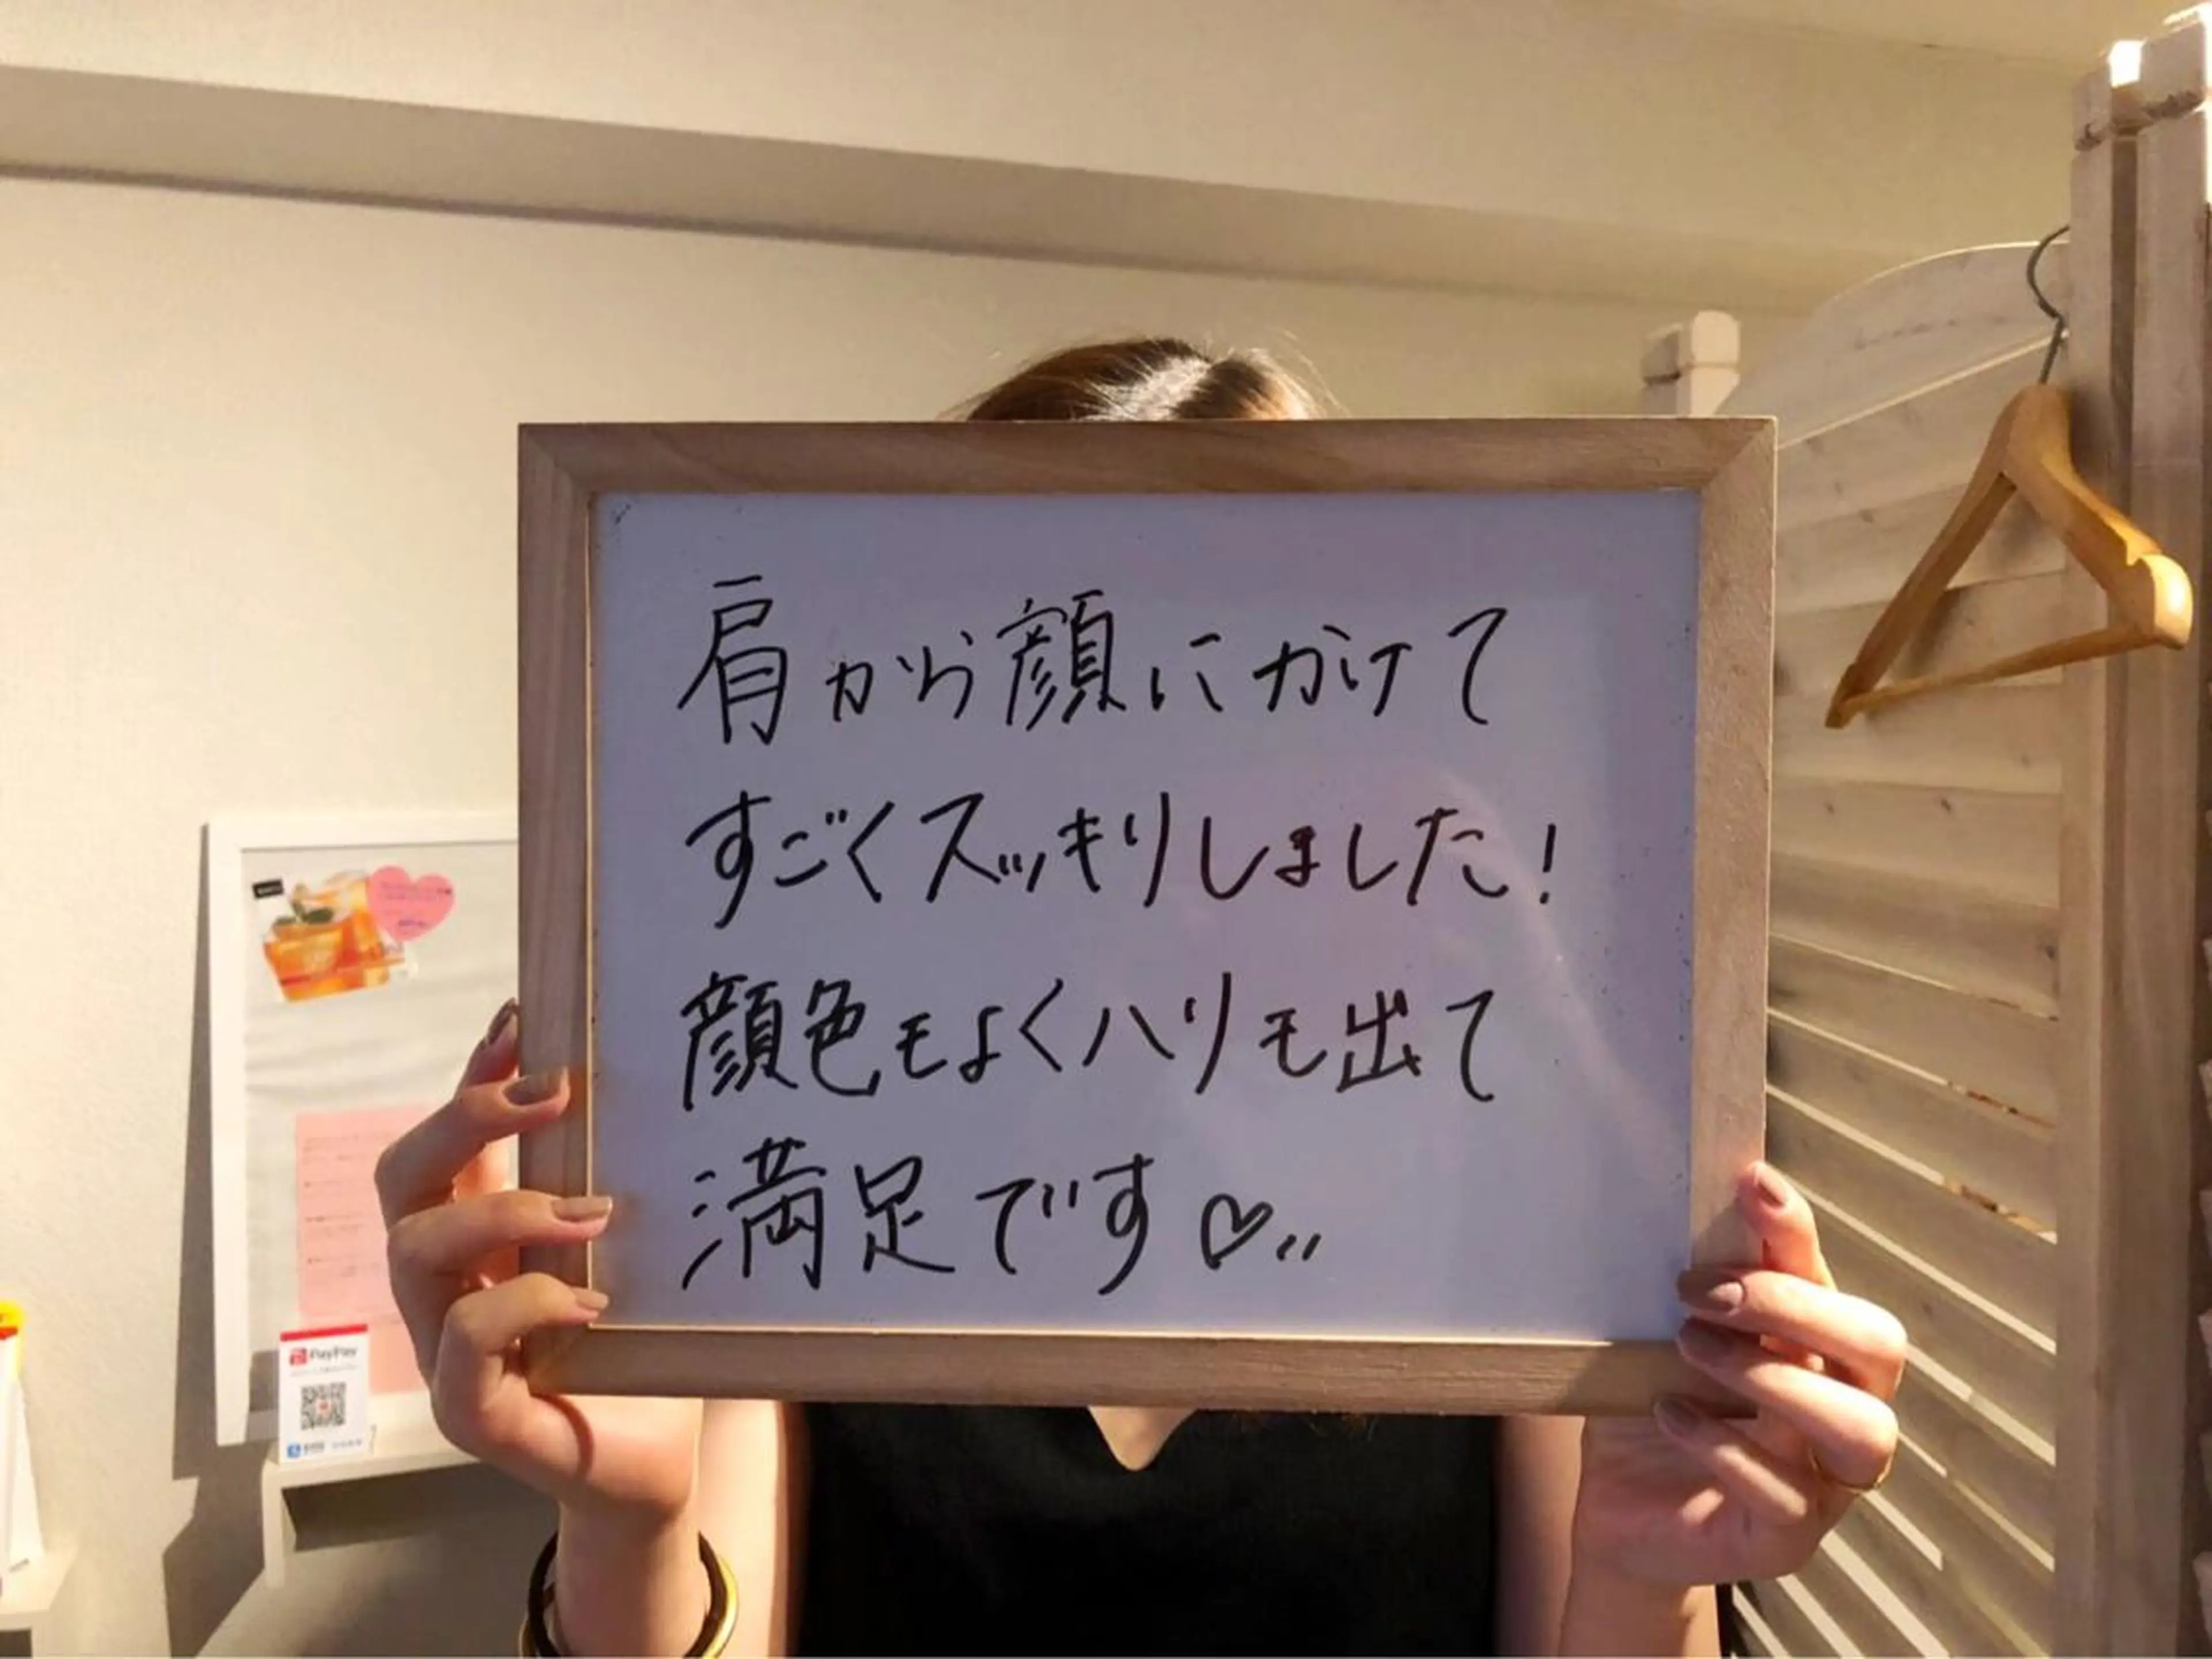 肩から顔にかけて
すごくスッキリしました！
顔色もよくハリも出て
満足です♡〃
PayPay